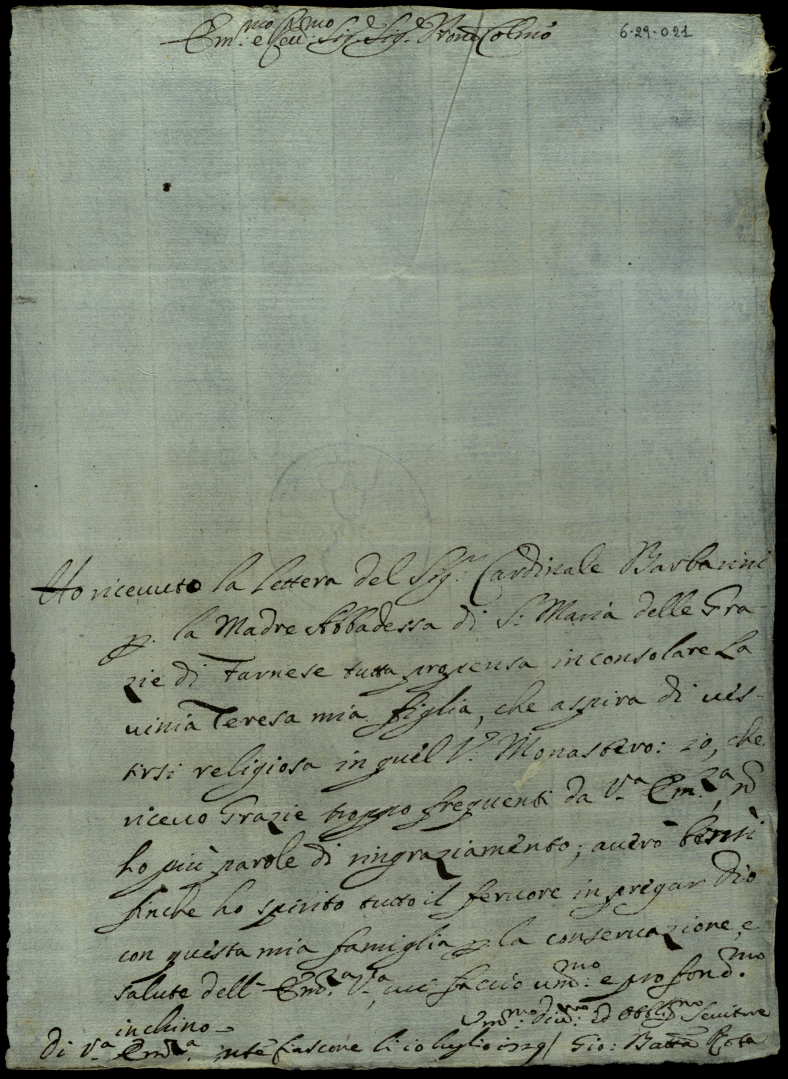 Em.mo e Rev.mo Sig.r Sig.r Pron Colmo
6-29-021
Ho riceuuto la lettera del Sig.r Cardinale Barbarini
p. la Madre Abbadessa di S. Maria delle Gra-
zie di Farnese tutta propensa in consolare La
uinia Teresa mia figlia, che aspira di ues-
tirsi religiosa in quel V. Monastero: io, che
riceuo Grazie troppo frequenti da V.a Em.za, nō
ho più parole di ringraziamento; auerò bensì
finche ho spirito tutto il feruore in pregar Dio
con questa mia famiglia p. la conseruazione, e
salute dell' Em.za V.a, cui faccio um.mo e profond.mo
inchino
Um.mo Diu.mo ed Obblig.mo Seruitore
di V.a Em.za Monte Fiascone li 10 luglio 1729 / Gio: Batta Rota